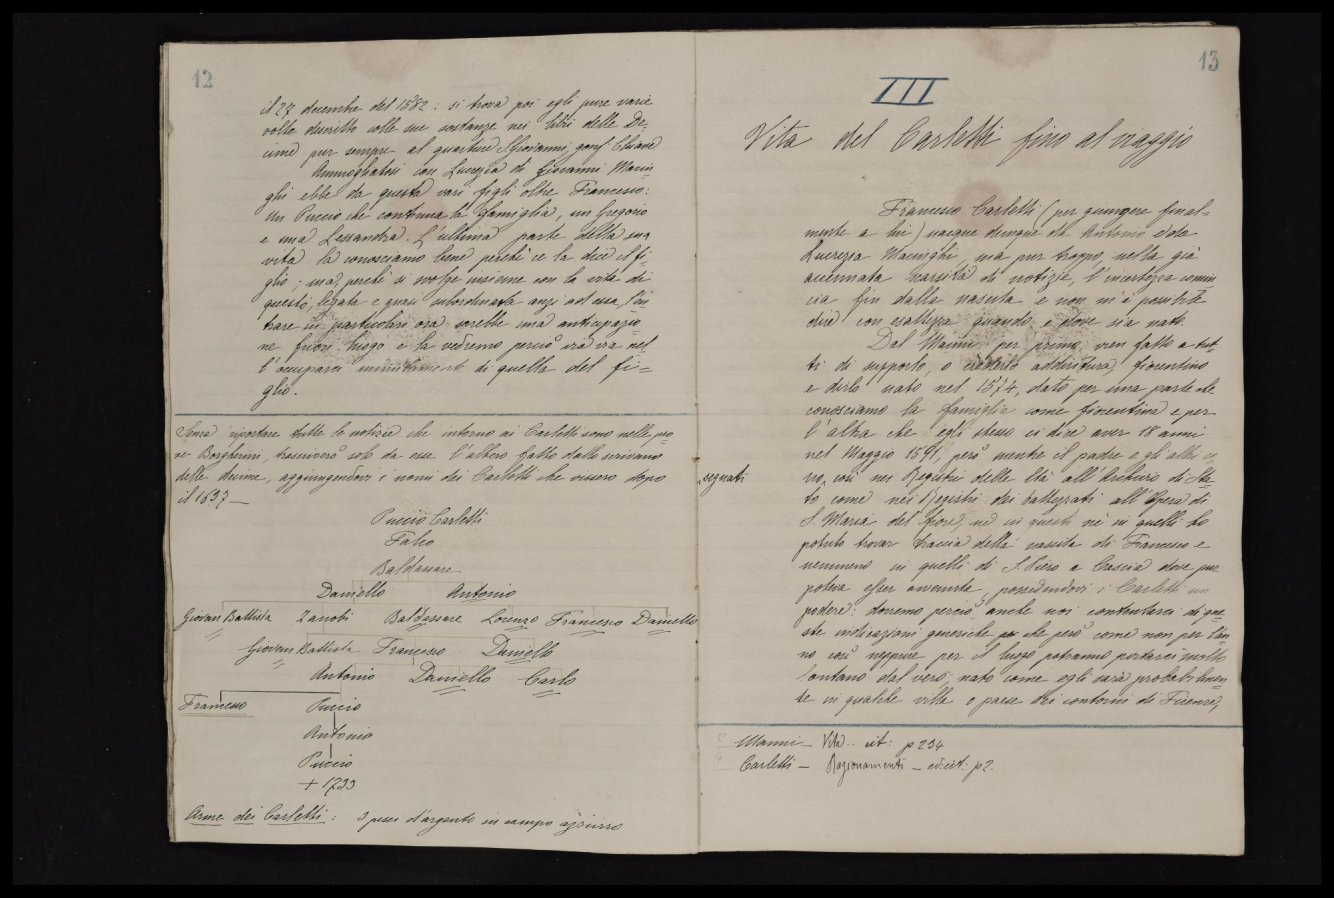 12
il 27 decembre del 1582: si trova poi egli pure varie
volte descritto colle sue sostanze nei libri delle De-
cime pur sempre al quartiere S. Giovanni, gonf. Chiave
Ammogliatosi con Lucrezia di Giovanni Macin-
ghi ebbe da questa vari figli oltre Francesco:
un Puccio che continua la famiglia, un Gregorio
e una Lessandra. L'ultima parte della sua
vita la conosciamo bene perchè ce la dice il fi-
glio; ma, perchè si svolge insieme con la vita di
questo, legata e quasi subordinata anzi ad essa, l'en
trare in particolari ora sarebbe una anticipazio
ne fuori luogo e la vedremo perciò via via nel-
l'occuparci minutamente di quella del fi=
glio.
Senza riportare tutte le notizie che intorno ai Carletti sono nelle pro
ve Borgherini, trascriverò solo da esse l'albero fatto dallo scrivano
delle decime, aggiungendovi i nomi dei Carletti che vissero dopo
il 1637 —
Puccio Carletti
Falco
Baldassare
Daniello Antonio
Giovan Battista Zanobi Baldassare Lorenzo Francesco Daniello
Giovan Battista Francesco Daniello
Antonio Daniello Carlo
Francesco Puccio
Antonio
Puccio
+ 1733
Arme dei Carletti: 3 pesci d'argento in campo azzurro
13
III
Vita del Carletti fino al viaggio
Francesco Carletti (per giungere final=
mente a lui) nacque dunque da Antonio e da
Lucrezia Macinghi, ma pur troppo, nella già
accennata scarsità di notizie, l'incertezza comin
cia fin dalla nascita e non m'è possibile
dire con esattezza quando e dove sia nato.
Dal Manni per primo, vien fatto a tut-
ti di supporlo, o crederlo addirittura, fiorentino
e dirlo nato nel 1574, dato per una parte che
conosciamo la famiglia come fiorentina e per
l'altra che egli stesso ci dice aver 18 anni
nel Maggio 1591; però mentre il padre e gli altri e-
segnati
no, così nei Registri delle Età all'Archivio di Sta
to come nei Registri dei battezzati all'Opera di
S. Maria del fiore, nè in questi nè in quelli ho
potuto trovar traccia della nascita di Francesco e
nemmeno in quelli di S. Piero a Cascia dove pur
poteva esser avvenuta, possedendovi i Carletti un
podere: dovremo perciò anche noi contentarci di que
ste indicazioni generiche che però come non per l'an-
no così neppure per il luogo potranno portarci molto
lontano dal vero, nato come egli sarà probabilmen
te in qualche villa o paese dei contorni di Firenze,
Manni — Vita.. cit: p 234
Carletti — Ragionamenti — ed. cit. p 2.